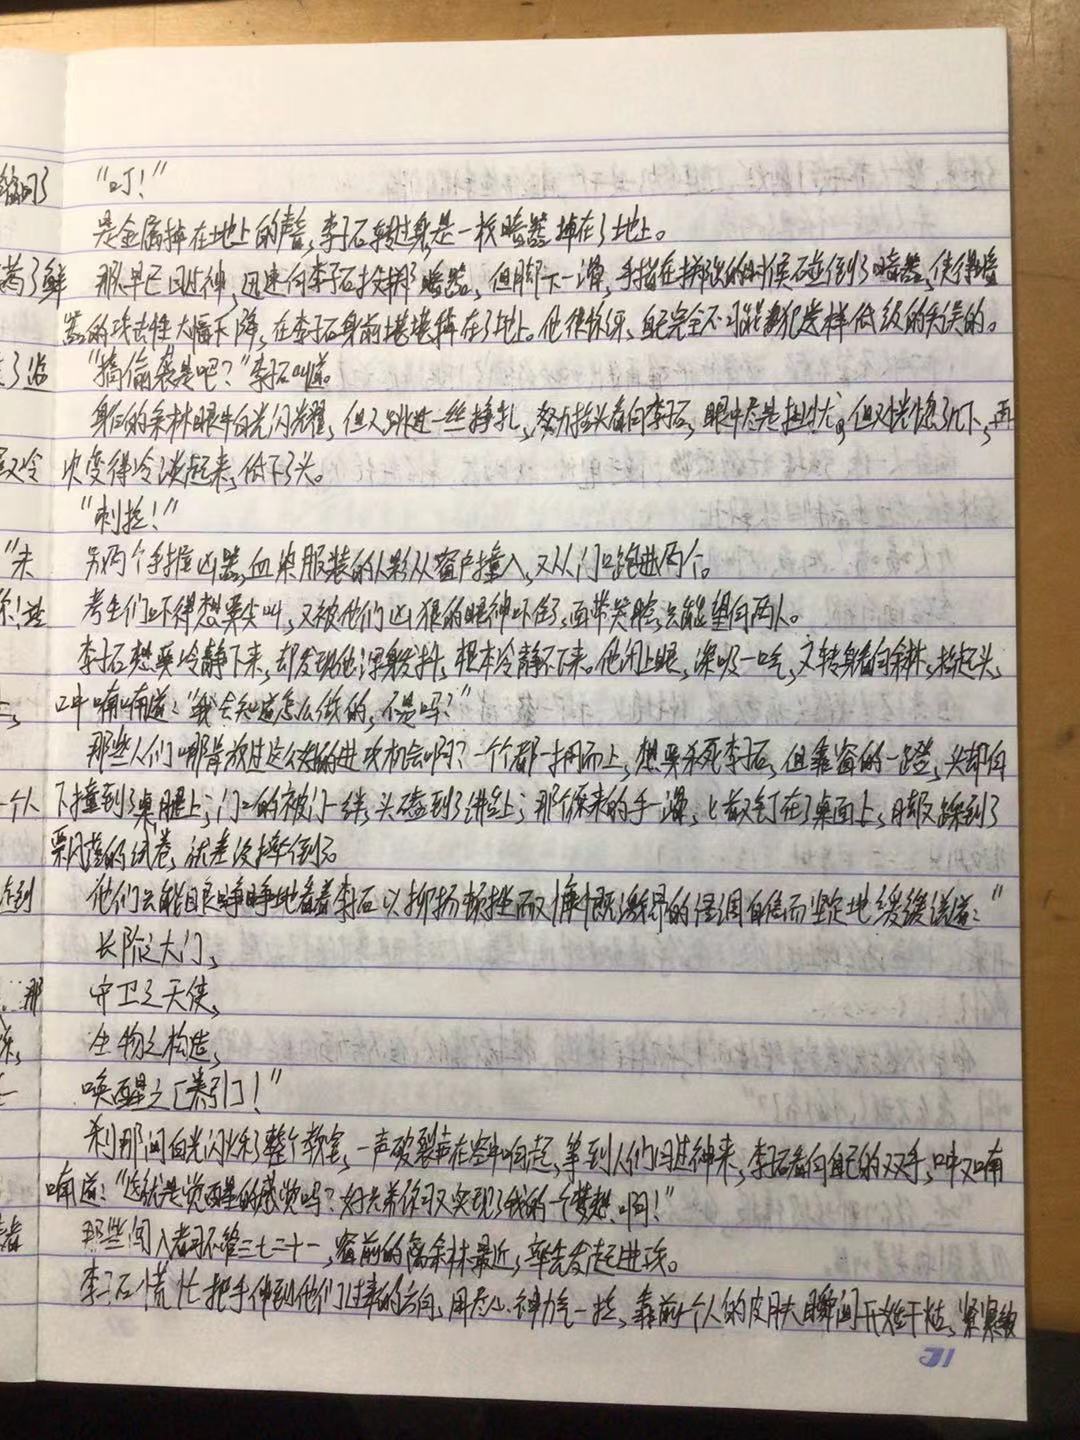 "叮！"
是金属掉在地上的声音，李子石转过身，是一枚暗器掉在了地上。
那人早已回过神，迅速向李子石投掷了暗器，但脚下一滑，手指在掷出的时候碰到了暗器，使得暗
器的攻击性大幅下降，在李子石身前堪堪掉在了地上。他很惊讶，自己完全不可能犯这样低级的失误的。
"搞偷袭是吧？"李子石叫道。
身后的余林眼中白光闪耀，但又跳过一丝挣扎，努力抬头看向李子石，眼中尽是担忧，但又恍惚了几下，再
次变得冷淡起来，低下了头。
"刺拉！"
另两个手握凶器，血染服装的人影从窗户撞入，又从门口跑进两个。
考生们吓得想要尖叫，又被他们凶狠的眼神吓住了，面带哭腔，只能望向两人。
李子石想要冷静下来，却发现他浑身发抖，根本冷静不下来。他闭上眼，深吸一口气，又转身看向余林，抬起头，
口中喃喃道："我会知道怎么做的，不是吗？"
那些人们哪肯放过这么好的进攻机会啊？一个个都一拥而上，想要杀死李子石，但靠窗的一蹬，头却向
下撞到了桌腿上；门口的被门一绊，头磕到了讲台上；那个原来的手一滑，匕首又钉在了桌面上，脚又踩到了
飘落的试卷，试差没摔倒。
他们只能眼睁睁地看着李子石以抑扬顿挫而又慷慨激昂的怪调自信而坚定地缓缓说道："
长阶之大门，
守卫之天使，
生物之构造，
唤醒之［索引］！"
刹那间白光闪烁了整个教室，一声破裂声在空中响起，等到人们回过神来，李子石看向自己的双手，口中又喃
喃道："这就是觉醒的感觉吗？好兄弟你可又实现了我的一个梦想啊！"
那些闯入者可不管三七二十一，窗前的离余林最近，率先发起进攻。
李子石慌忙把手伸到他们过来的方向，用尽心神力气一拉，靠前个人的皮肤瞬间开始干枯，紧紧皱